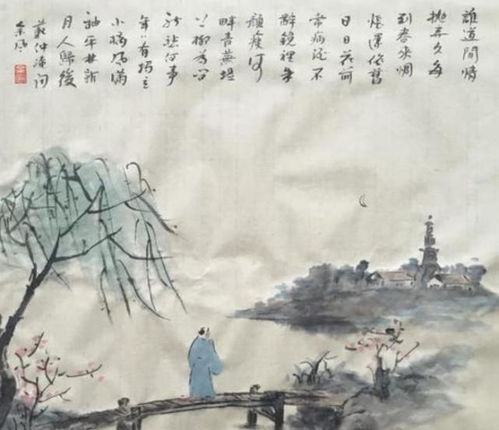 誰道閒情
拋弃久每
到春來惆
悵還依舊
日日花前
常病酒不
辭鏡裡朱
顏瘦河
畔青蕪堤
上柳為問
新愁何事
年年有獨立
小橋風滿
袖平林新
月人歸後